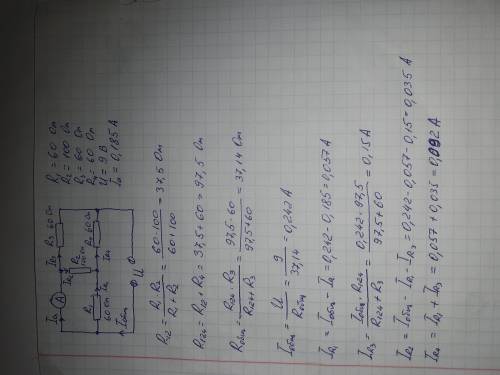 R₁ = 60 Ом
R₂ = 100 Ом
R₃ = 60 Ом
R₄ = 60 Ом
U = 9 В
Iₐ = 0,185 А
Iₐ A I_R3 R₃ 60 Ом
R₁ 60 Ом R₂ 100 Ом R₄ 60 Ом
Iобщ U
R₁₂ = R₁ · R₂ / R₁ + R₂ = 60 · 100 / 60 + 100 = 37,5 Ом
R₁₂₄ = R₁₂ + R₄ = 37,5 + 60 = 97,5 Ом
Rобщ = R₁₂₄ · R₃ / R₁₂₄ + R₃ = 97,5 · 60 / 97,5 + 60 = 37,14 Ом
Iобщ = U / Rобщ = 9 / 37,14 = 0,242 А
I_R1 = Iобщ - Iₐ = 0,242 - 0,185 = 0,057 А
I_R3 = Iобщ · R₁₂₄ / R₁₂₄ + R₃ = 0,242 · 97,5 / 97,5 + 60 = 0,15 А
I_R2 = Iобщ - I_R1 - I_R3 = 0,242 - 0,057 - 0,15 = 0,035 А
I_R4 = I_R1 + I_R2 = 0,057 + 0,035 = 0,092 А